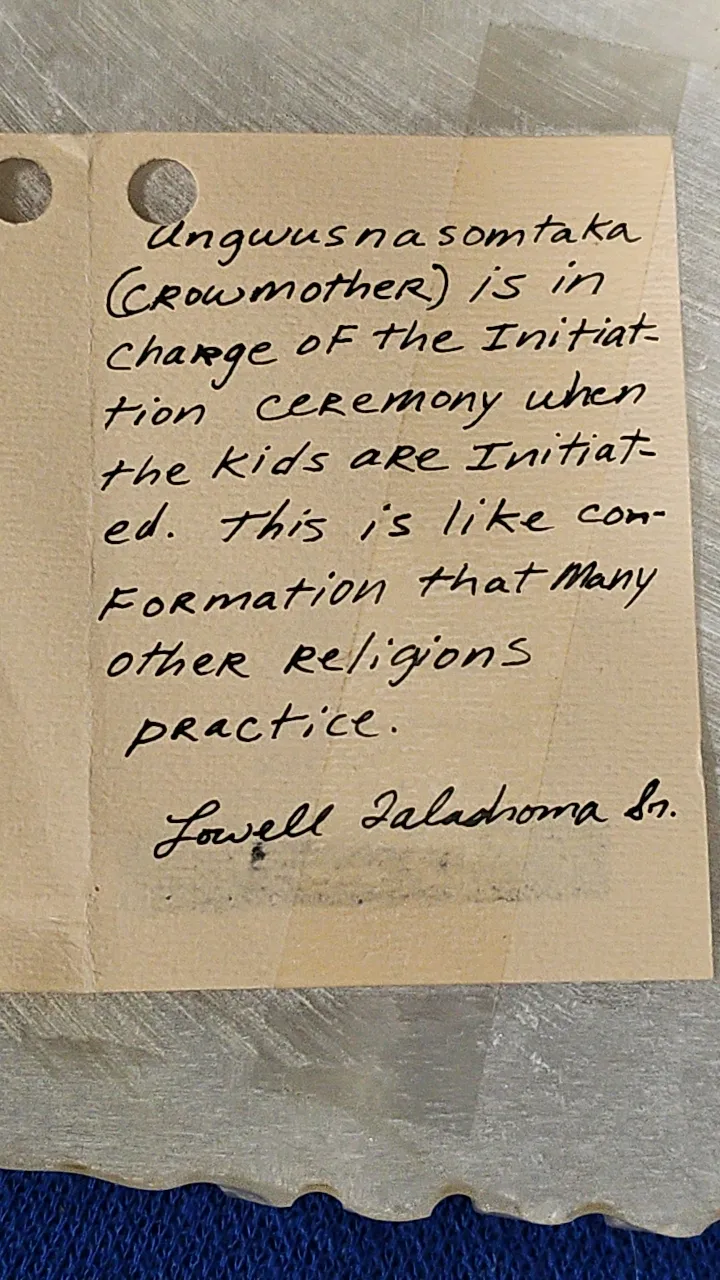 Ungwusnasomtaka
(Crowmother) is in
charge of the Initiat-
tion ceremony when
the kids are Initiat-
ed. This is like con-
formation that Many
other Religions
practice.
Lowell Talashoma Sr.